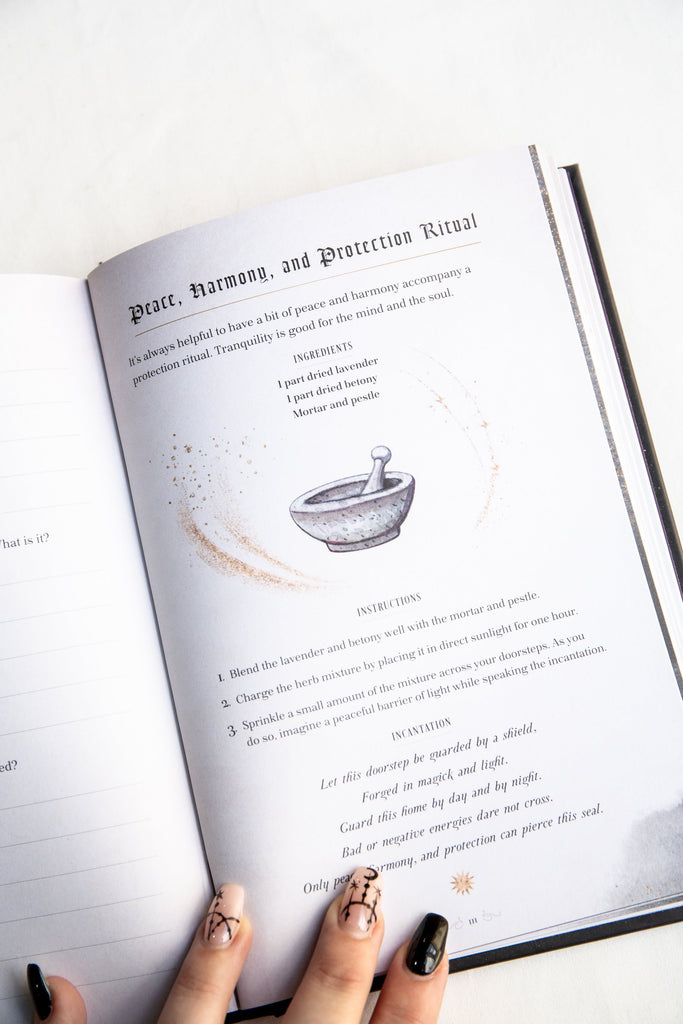 What is it?
ed?
Peace, Harmony, and Protection Ritual
It's always helpful to have a bit of peace and harmony accompany a
protection ritual. Tranquility is good for the mind and the soul.
INGREDIENTS
1 part dried lavender
1 part dried betony
Mortar and pestle
INSTRUCTIONS
1. Blend the lavender and betony well with the mortar and pestle.
2. Charge the herb mixture by placing it in direct sunlight for one hour.
3. Sprinkle a small amount of the mixture across your doorsteps. As you
do so, imagine a peaceful barrier of light while speaking the incantation.
INCANTATION
Let this doorstep be guarded by a shield,
Forged in magick and light.
Guard this home by day and by night.
Bad or negative energies dare not cross.
Only peace, harmony, and protection can pierce this seal.
111